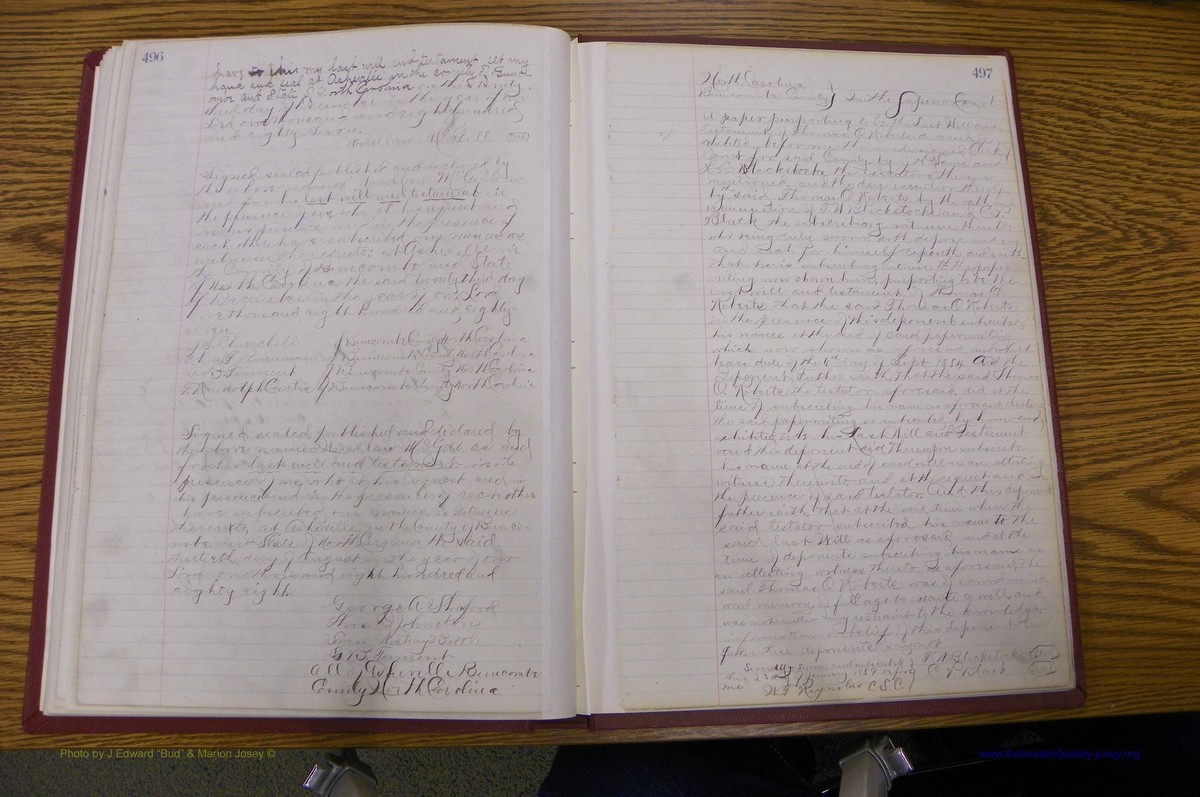 496
have to this my last will and testament set my
hand and seal at Asheville in the county of Bun
combe and State of North Carolina on the twenty
third day of December in the year of our
Lord one thousand and eight hundred
and eighty seven
Wardlaw McGill
Signed sealed published and declared by
the above named Wardlaw McGill as
and for his last will and testament in
the presence of us who at his request and
in his presence and in the presence of
each other have subscribed our names as
witnesses thereunto, at Asheville in
the County of Buncombe and State
of North Carolina the said twenty third day
of December in the year of our Lord
one thousand eight hundred and eighty
seven
Churchill of Buncombe Co North Carolina
of Buncombe County North Carolina
of Buncombe County North Carolina
of Buncombe County North Carolina
Signed sealed published and declared by
the above named Wardlaw McGill as and
for his last will and testament in the
presence of us, who at his request and in
his presence and in the presence of each other
have subscribed our names as witness
thereunto, at Asheville in the County of Bunc-
ombe and State of North Carolina the said
thirtieth day of August in the year of our
Lord one thousand eight hundred and
eighty eight
George A Shuford
Thos D Johnston
All of Asheville Buncombe
County North Carolina
497
North Carolina
Buncombe County } In the Superior Court
A paper purporting to be the Last Will and
testament of Thomas O Roberts deceased
before me the undersigned Clerk
court for said County by
Blackstock the executors therein
mentioned and the due execution thereof
by said Thomas O. Roberts by the oath and
examination of T H Blackstock and C P
Black the subscribing witnesses thereto
who being duly sworn doth depose and say
and each for himself deposeth and saith
that he is a subscribing witness to the paper
writing now shown him, purporting to be the
last will and testament of Thomas O.
Roberts that the said Thomas O Roberts
in the presence of this deponent subscribed
his name at the end of said paperwriting
which now shown as aforesaid and which
bears date of the 6th day of Sept 1884 And the
deponent further saith, that the said Thomas
O. Roberts the testator aforesaid did at the
time of subscribing his name as aforesaid declare
the said paperwriting so subscribed by him and
exhibited to be his last Will and testament
and this deponent did thereupon subscribe
his name at the end of said will as an attesting
witness thereunto and at the request and in
the presence of said testator. And this deponent
further saith, that at the said time when the
said testator subscribed his name to the
said last Will as aforesaid and at the
time of deponents subscribing his name as
an attesting witness thereto as aforesaid, the
said Thomas O Roberts was of sound mind
and memory, of full age to execute a will and
was not under any restraint to the knowledge
information or belief of this deponent and
further these deponents say not
Severally sworn and subscribed T. H. Blackstock
this 23d day of 1889 before C P Black
me W T Reynolds C.S.C.
Photo by J Edward "Bud" & Marion Josey ©
www.thehouseofjossey-josey.org